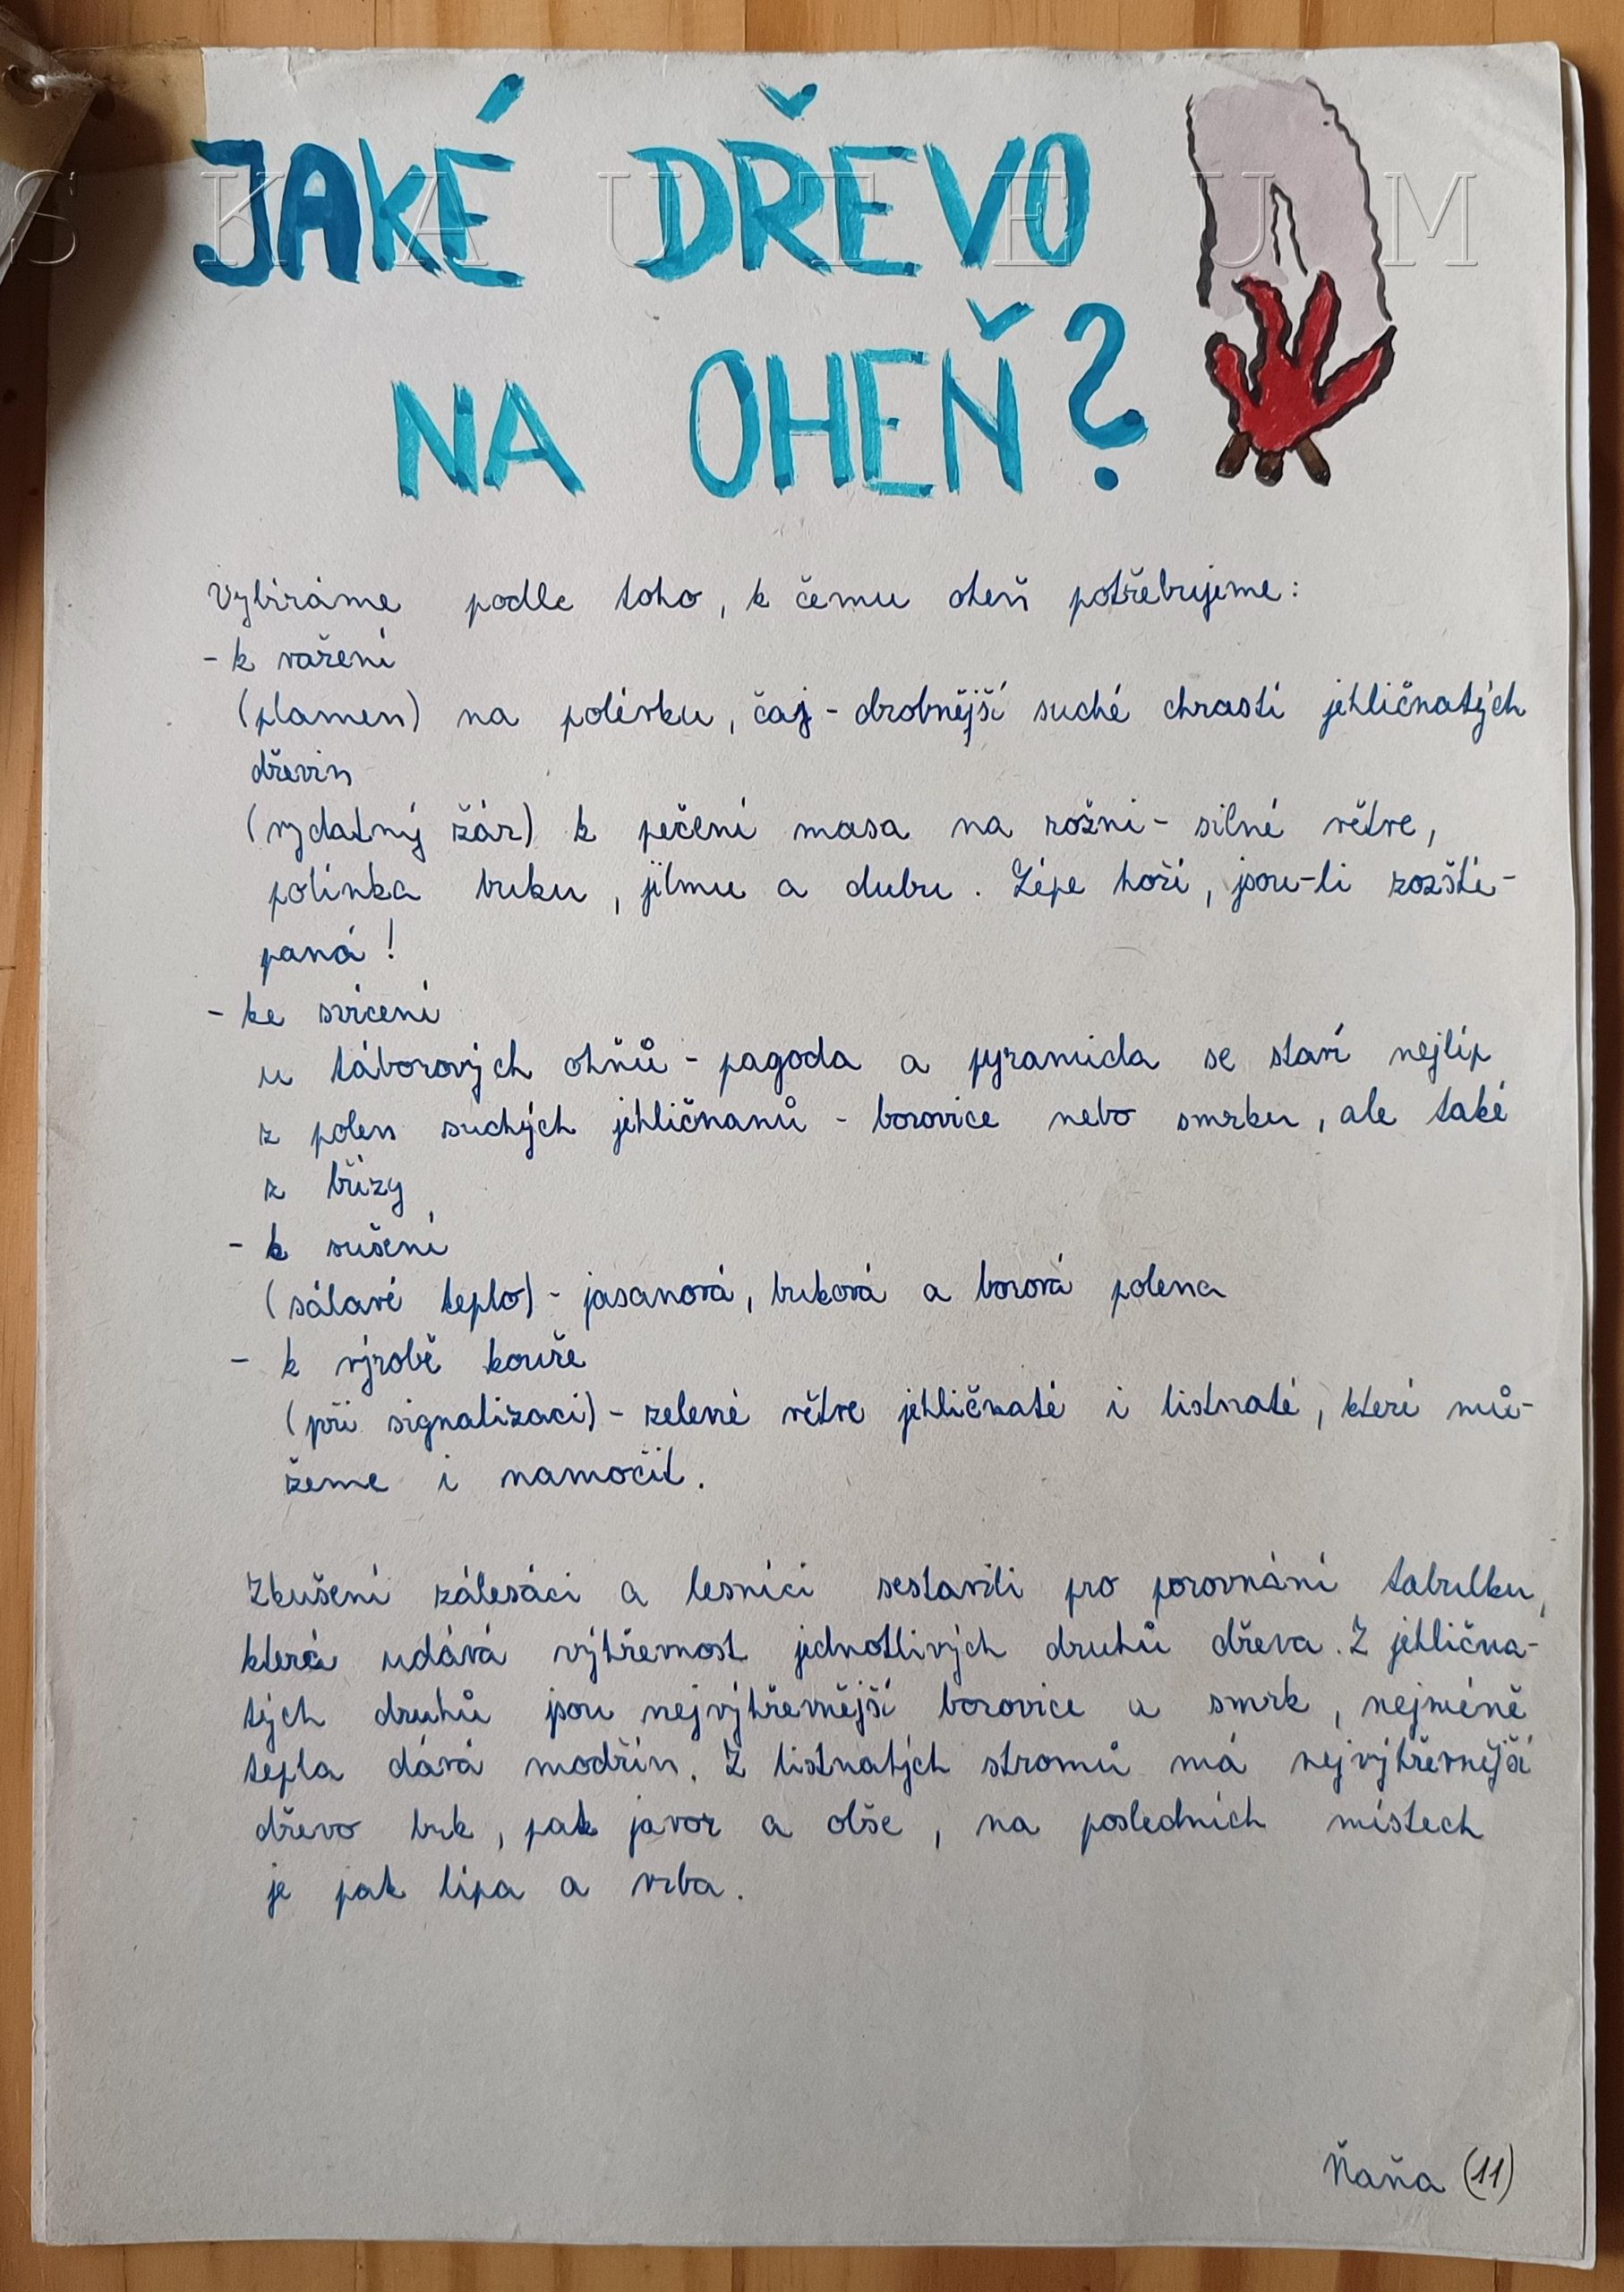 JAKÉ DŘEVO
SKAUTEUM
NA OHEŇ?
Vybíráme podle toho, k čemu oheň potřebujeme:
- k vaření
(plamen) na polévku, čaj - drobnější suché chrastí jehličnatých
dřevin
(vydatný žár) k pečení masa na rožni - silné větve,
polínka buku, jilmu a dubu. Lépe hoří, jsou-li rozští-
paná!
- ke svícení
u táborových ohňů - pagoda a pyramida se staví nejlíp
z polen suchých jehličnanů - borovice nebo smrku, ale také
z břízy
- k sušení
(sálavé teplo) - jasanová, buková a borová polena
- k výrobě kouře
(při signalizaci) - zelené větve jehličnaté i listnaté, které mů-
žeme i namočit.
Zkušení zálesáci a lesníci sestavili pro porovnání tabulku,
která udává výhřevnost jednotlivých druhů dřeva. Z jehlična-
tých druhů jsou nejvýhřevnější borovice a smrk, nejméně
tepla dává modřín. Z listnatých stromů má nejvýhřevnější
dřevo buk, pak javor a olše, na posledních místech
je pak lípa a vrba.
Ňaňa (11)